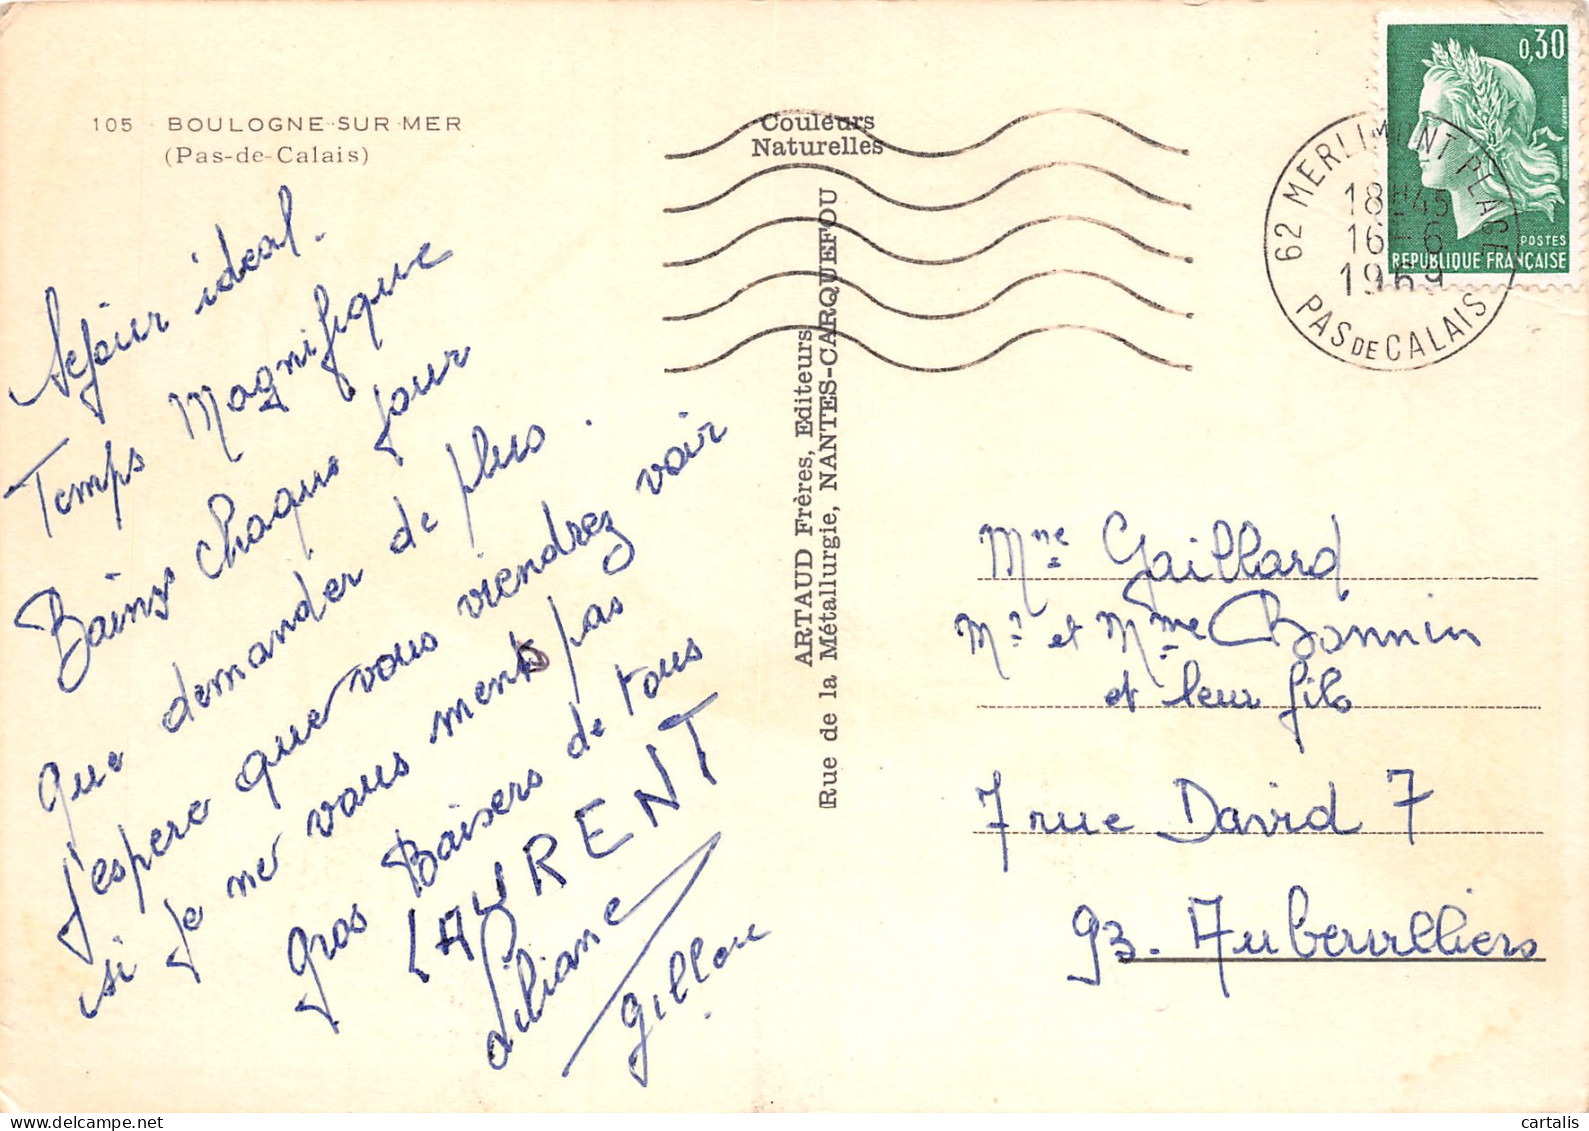 105 BOULOGNE-SUR-MER
(Pas-de-Calais)
Couleurs
Naturelles
62 MERLIMONT PLAGE
18H45
16-6
1969
PAS DE CALAIS
0,30
POSTES
REPUBLIQUE FRANÇAISE
Sejour ideal.
Temps Magnifique
Bains chaque jour
que demander de plus.
J'espere que vous viendrez voir
si je ne vous ments pas
gros Baisers de tous
LAURENT
Liliane
Gilles
ARTAUD Frères, Editeurs
Rue de la Métallurgie, NANTES-CARQUEFOU
Mme Gaillard
Mr et Mme Bonnin
et leur fils
7 rue David 7
93. Aubervilliers
cartalis